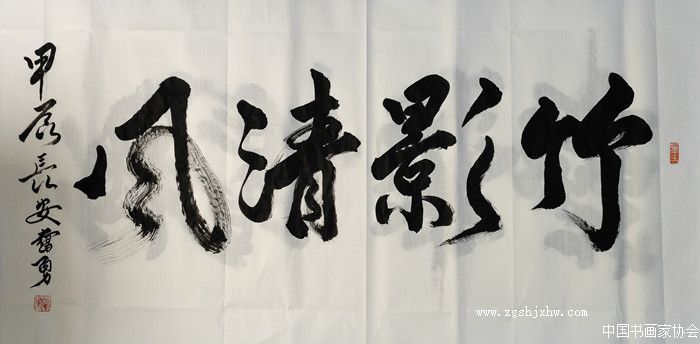 竹影清风
甲辰长安勇
www.zgshjxhw.com
中国书画家协会